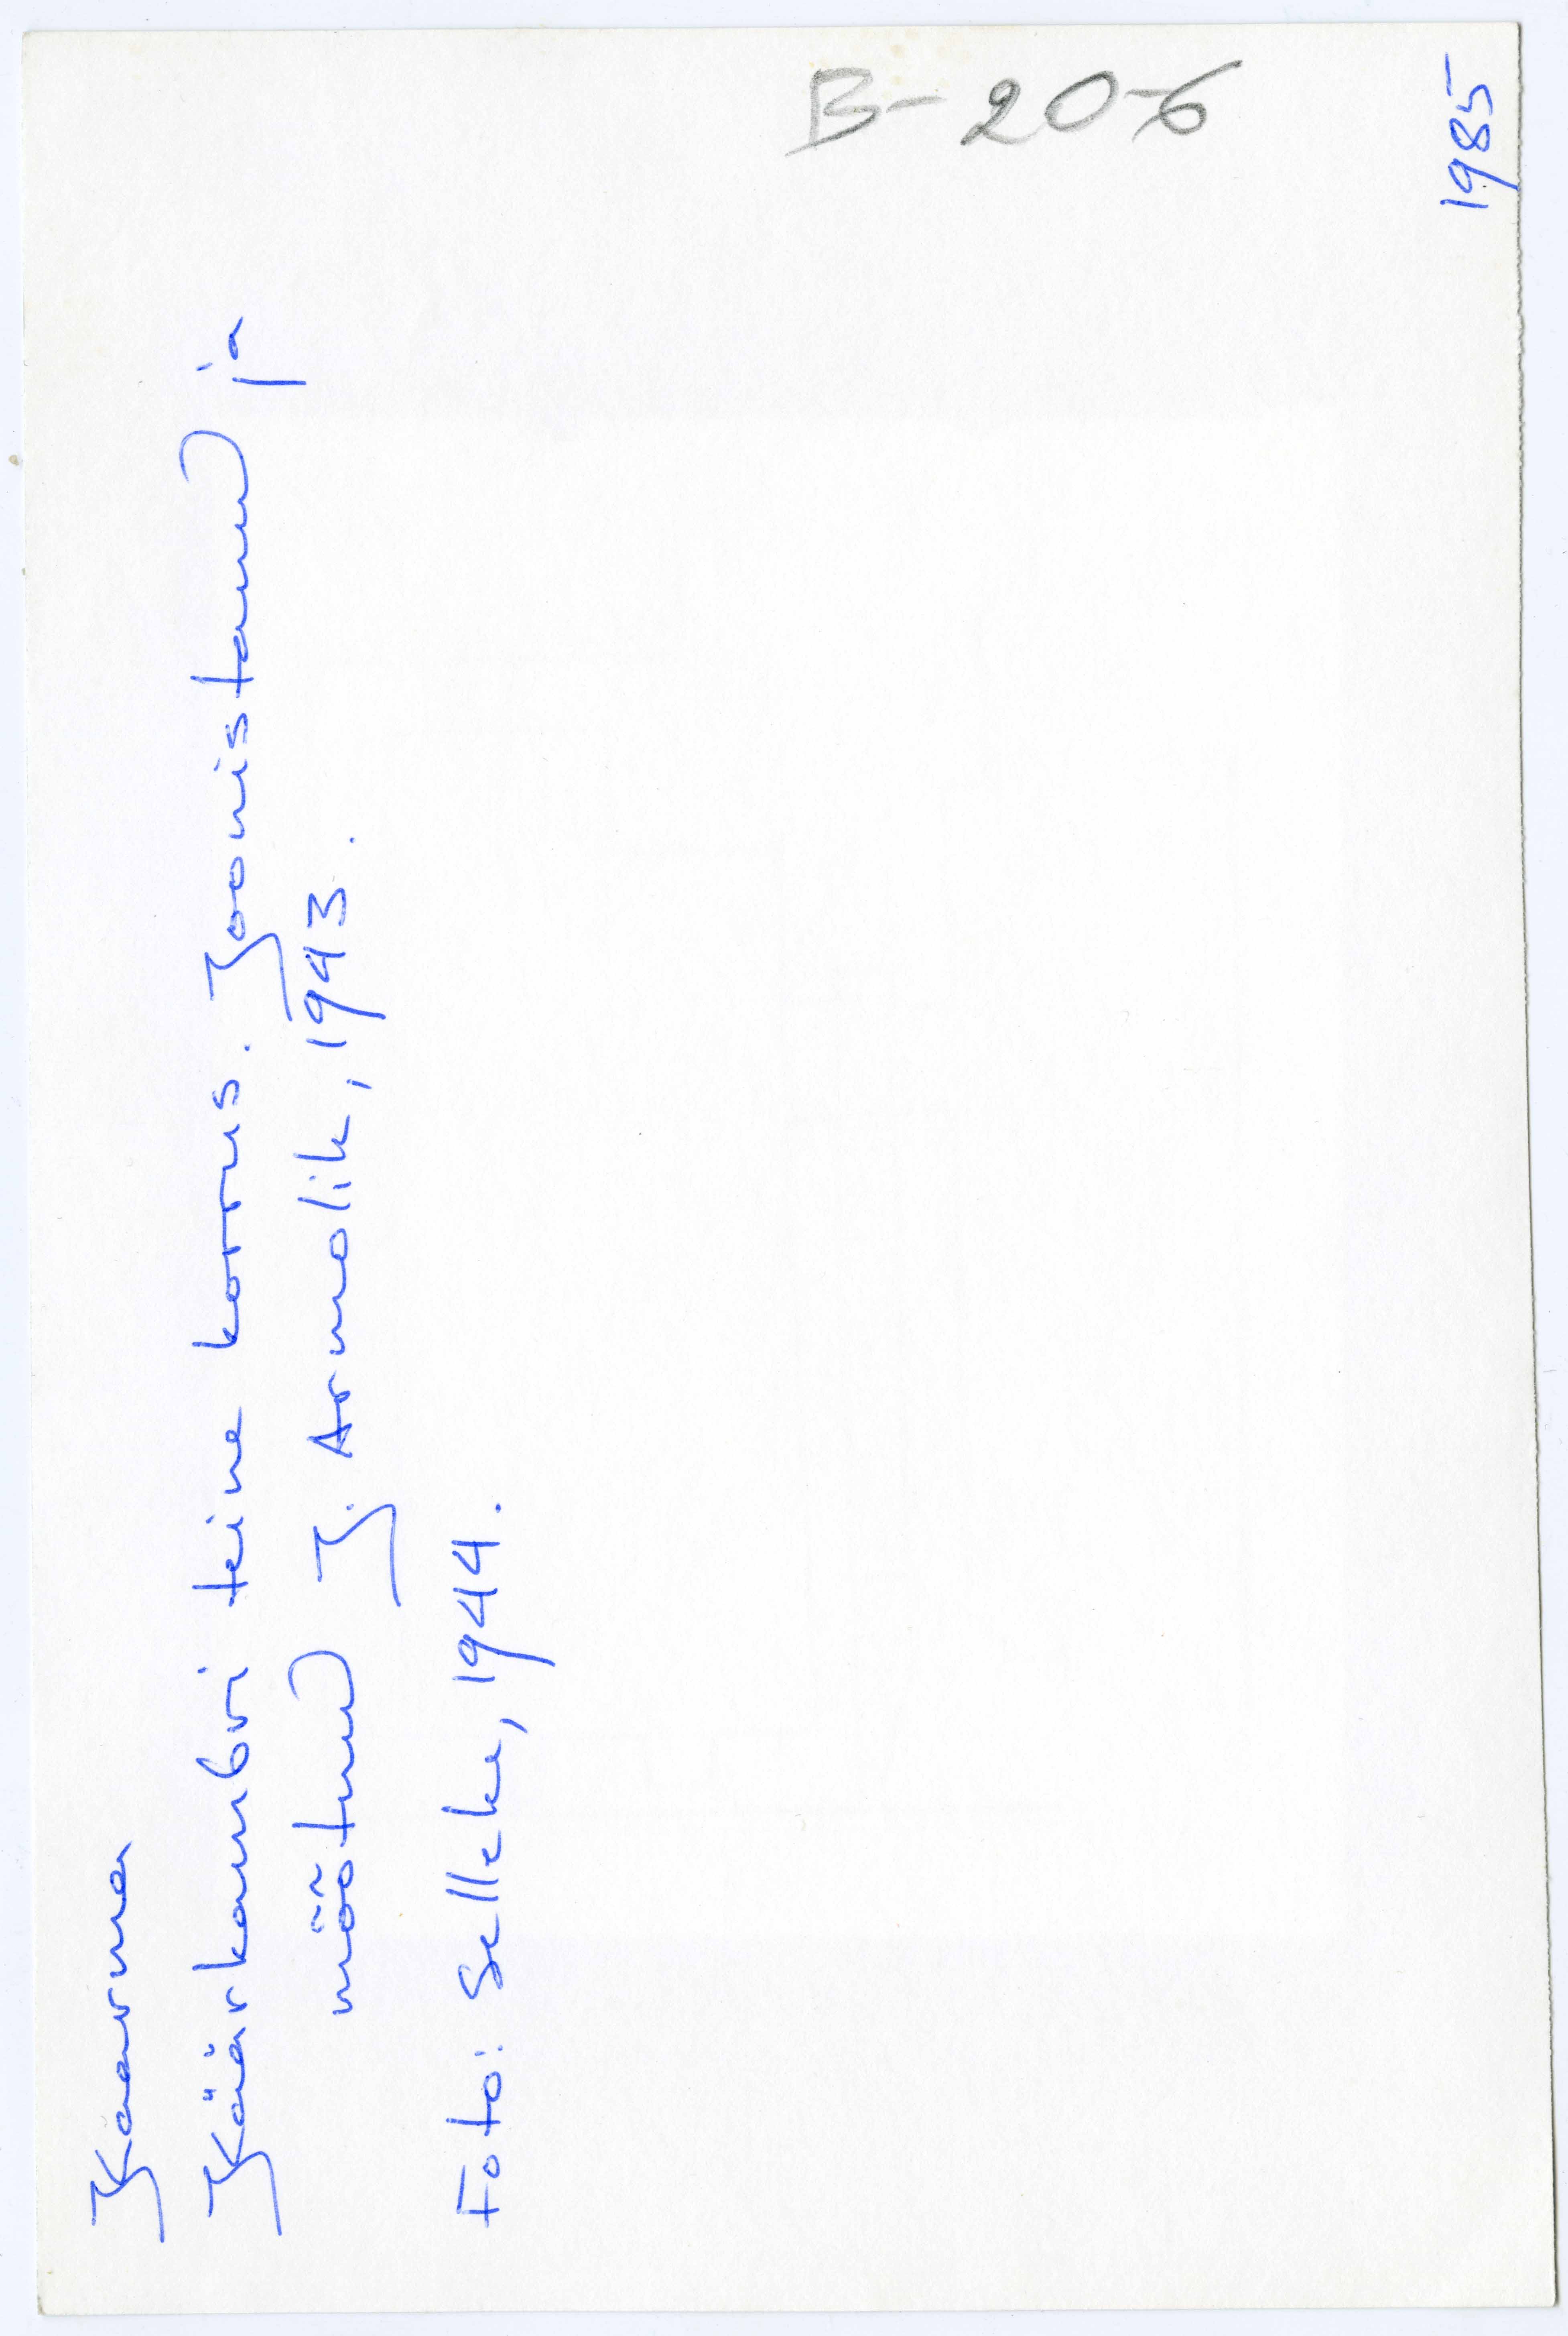 Kaarma
Käärkambri teine korrus. Joonistanud ja
mõõtnud J. Armolik, 1943.
Foto: Selleke, 1944.
B-20-6
1985